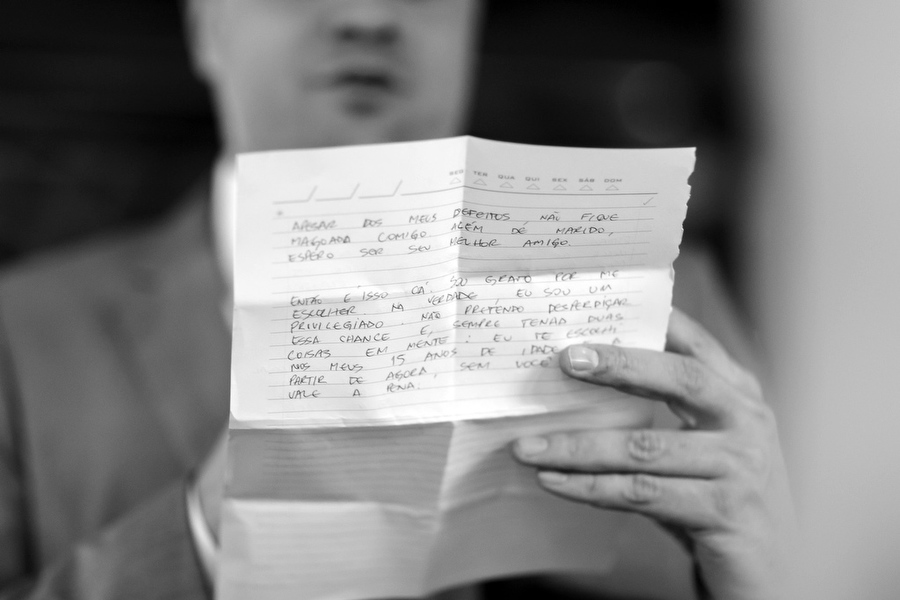 SEG TER QUA QUI SEX SÁB DOM
APESAR DOS MEUS DEFEITOS NÃO FIQUE
MAGOADA COMIGO ALÉM DE MARIDO,
ESPERO SER SEU MELHOR AMIGO.
ENTÃO É ISSO CÁ. SOU GRATO POR ME
ESCOLHER. NA VERDADE, EU SOU UM
PRIVILEGIADO. NÃO PRETENDO DESPERDIÇAR
ESSA CHANCE E, SEMPRE TENHA DUAS
COISAS EM MENTE: EU TE ESCOLHI
NOS MEUS 15 ANOS DE IDADE A
PARTIR DE AGORA, SEM VOCÊ
VALE A PENA.